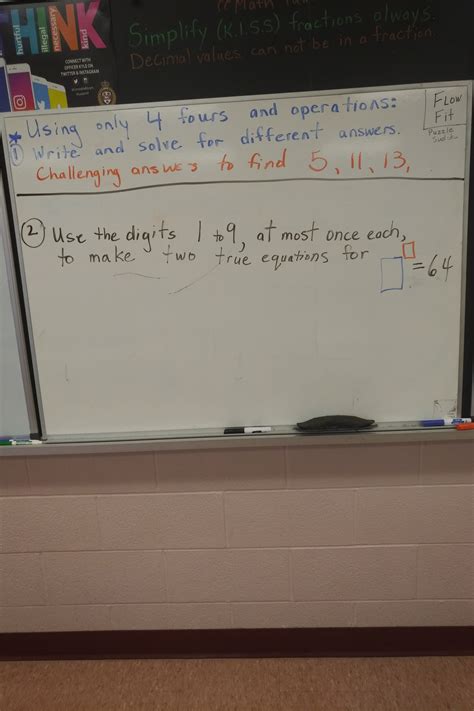 THINK
hurtful
illegal
necessary
kind
CONNECT WITH
OFFICER KYLE ON
TWITTER & INSTAGRAM
Math
Simplify (K.I.S.S) fractions always.
Decimal values can not be in a fraction.
Using only 4 fours and operations:
① Write and solve for different answers.
Challenging answers to find 5, 11, 13,
FLOW
Fit
Puzzle
② Use the digits 1 to 9, at most once each,
to make two true equations for
=64